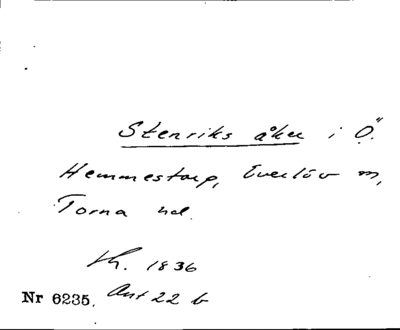 Stenriks åker i Ö.
Hemmestorp, Everlöv sn,
Torna hd.
1836
Nr 6235. Ant 22 b